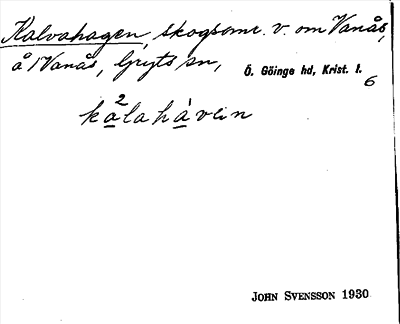 Kalvahagen, skogsomr. v. om Vanås,
å 1 Vanås, Gryts sn, Ö. Göinge hd, Krist. l.
6
2
kalahávein
JOHN SVENSSON 1930